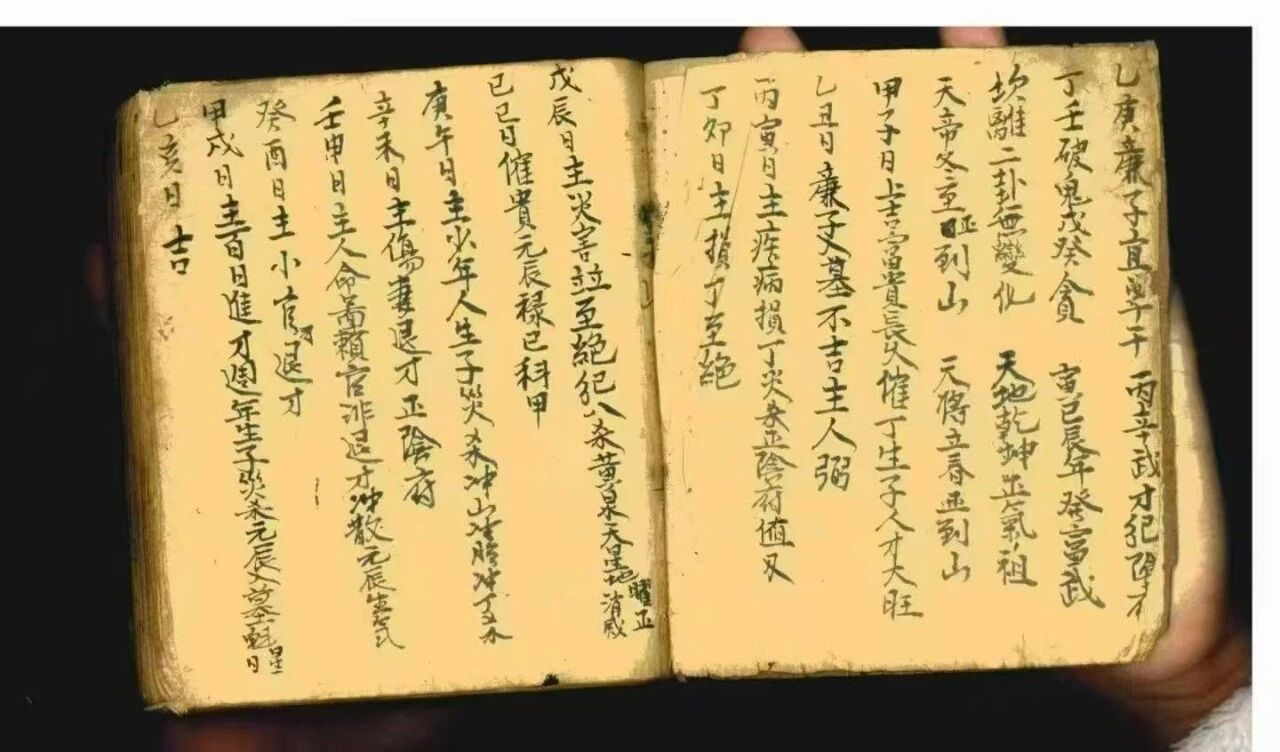 乙庚廉子宜軍干 丙辛武才犯陣才
丁壬破鬼戊癸貪 寅已辰年癸富武
坎離二卦無變化 天地乾坤正氣祖
天帝冬至 到山 元將立春 到山
甲子日 富貴長久催丁生子人才大旺
乙丑日廉子父墓不吉主人弱
丙寅日主疾病損丁災杀正陰府值
丁卯日主損丁至絕
戊辰日主災害竝至絕犯八杀黃泉天星地曜正消滅
已巳日催貴元辰祿已科甲
庚午日主少年人生子災杀冲山 冲丁
辛未日主傷妻退才正陰府
壬申日主人命啚賴官非退才冲散元辰
癸酉日主小官 退才
甲戌日主百日進才週年生子災杀元辰父墓魁星日
乙亥日 吉